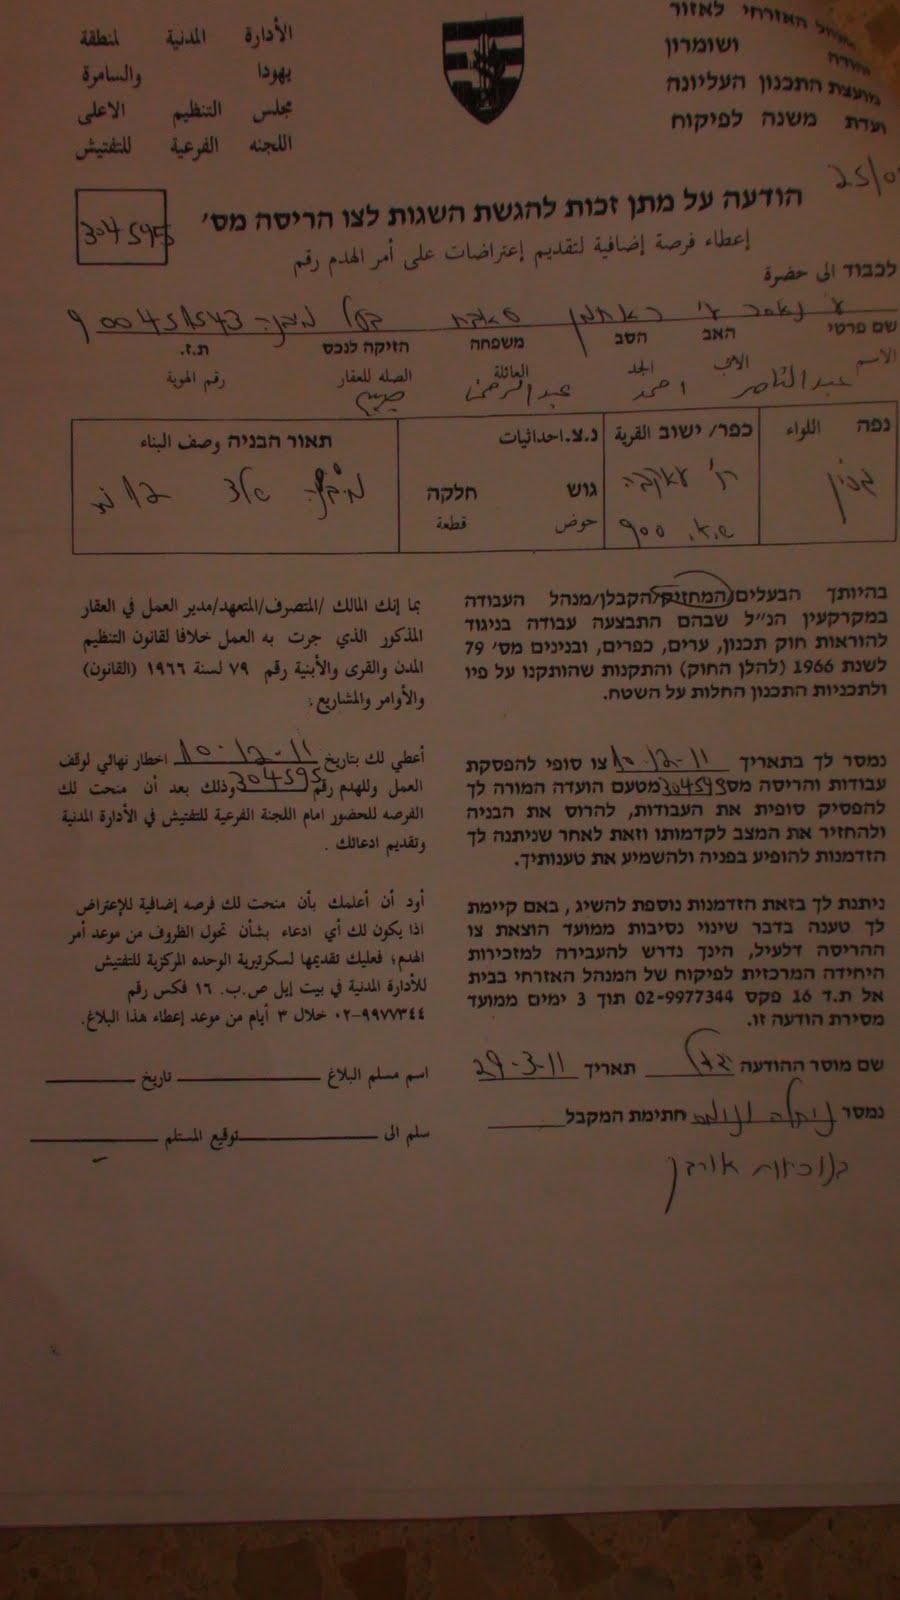 המנהל האזרחי לאזור
יהודה ושומרון
מועצת התכנון העליונה
ועדת משנה לפיקוח
الأدارة المدنية لمنطقة
يهودا والسامرة
مجلس التنظيم الاعلى
اللجنه الفرعية للتفتيش
הודעה על מתן זכות להגשת השגות לצו הריסה מס׳
304595
إعطاء فرصة إضافية لتقديم إعتراضات على أمر الهدم رقم
לכבוד الى حضرة
900451543
שם פרטי האב הסב משפחה הזיקה לנכס ת.ז.
الاسم الاب الجد العائلة الصله للعقار رقم الهوية
عبد الناصر احمد عبد الرحمن
נפה اللواء כפר/ ישוב القرية נ.צ. احداثيات תאור הבניה وصف البناء
גוש חלקה
حوض قطعة
בהיותך הבעלים/המחזיק/הקבלן/מנהל העבודה
במקרקעין הנ״ל שבהם התבצעה עבודה בניגוד
להוראות חוק תכנון, ערים, כפרים, ובנינים מס׳ 79
לשנת 1966 (להלן החוק) והתקנות שהותקנו על פיו
ולתכניות התכנון החלות על השטח.
بما إنك المالك /المتصرف/المتعهد/مدير العمل في العقار
المذكور الذي جرت به العمل خلافا لقانون التنظيم
المدن والقرى والأبنية رقم ٧٩ لسنة ١٩٦٦ (القانون)
والأوامر والمشاريع:
נמסר לך בתאריך 10-12-11 צו סופי להפסקת
עבודות והריסה מס 304595 מטעם הועדה המורה לך
להפסיק סופית את העבודות, להרוס את הבניה
ולהחזיר את המצב לקדמותו וזאת לאחר שניתנה לך
הזדמנות להופיע בפניה ולהשמיע את טענותיך.
أعطي لك بتاريخ 10-12-11 اخطار نهائي لوقف
العمل وللهدم رقم 304595 وذلك بعد أن منحت لك
الفرصه للحضور امام اللجنة الفرعية للتفتيش في الأدارة المدنية
وتقديم ادعائك .
ניתנת לך בזאת הזדמנות נוספת להשיג , באם קיימת
לך טענה בדבר שינוי נסיבות ממועד הוצאת צו
ההריסה דלעיל, הינך נדרש להעבירה למזכירות
היחידה המרכזית לפיקוח של המנהל האזרחי בבית
אל ת.ד 16 פקס 02-9977344 תוך 3 ימים ממועד
מסירת הודעה זו.
أود أن أعلمك بأن منحت لك فرصه إضافية للإعتراض
اذا يكون لك أي ادعاء بشأن تحول الظروف من موعد أمر
الهدم؛ فعليك تقديمها لسكرتيرية الوحده المركزية للتفتيش
للأدارة المدنية في بيت إيل ص.ب. ١٦ فكس رقم
٩٩٧٧٣٤٤-٠٢ خلال ٣ أيام من موعد إعطاء هذا البلاغ.
שם מוסר ההודעה תאריך 29-3-11
اسم مسلم البلاغ تاريخ
נמסר חתימת המקבל
سلم الى توقيع المستلم